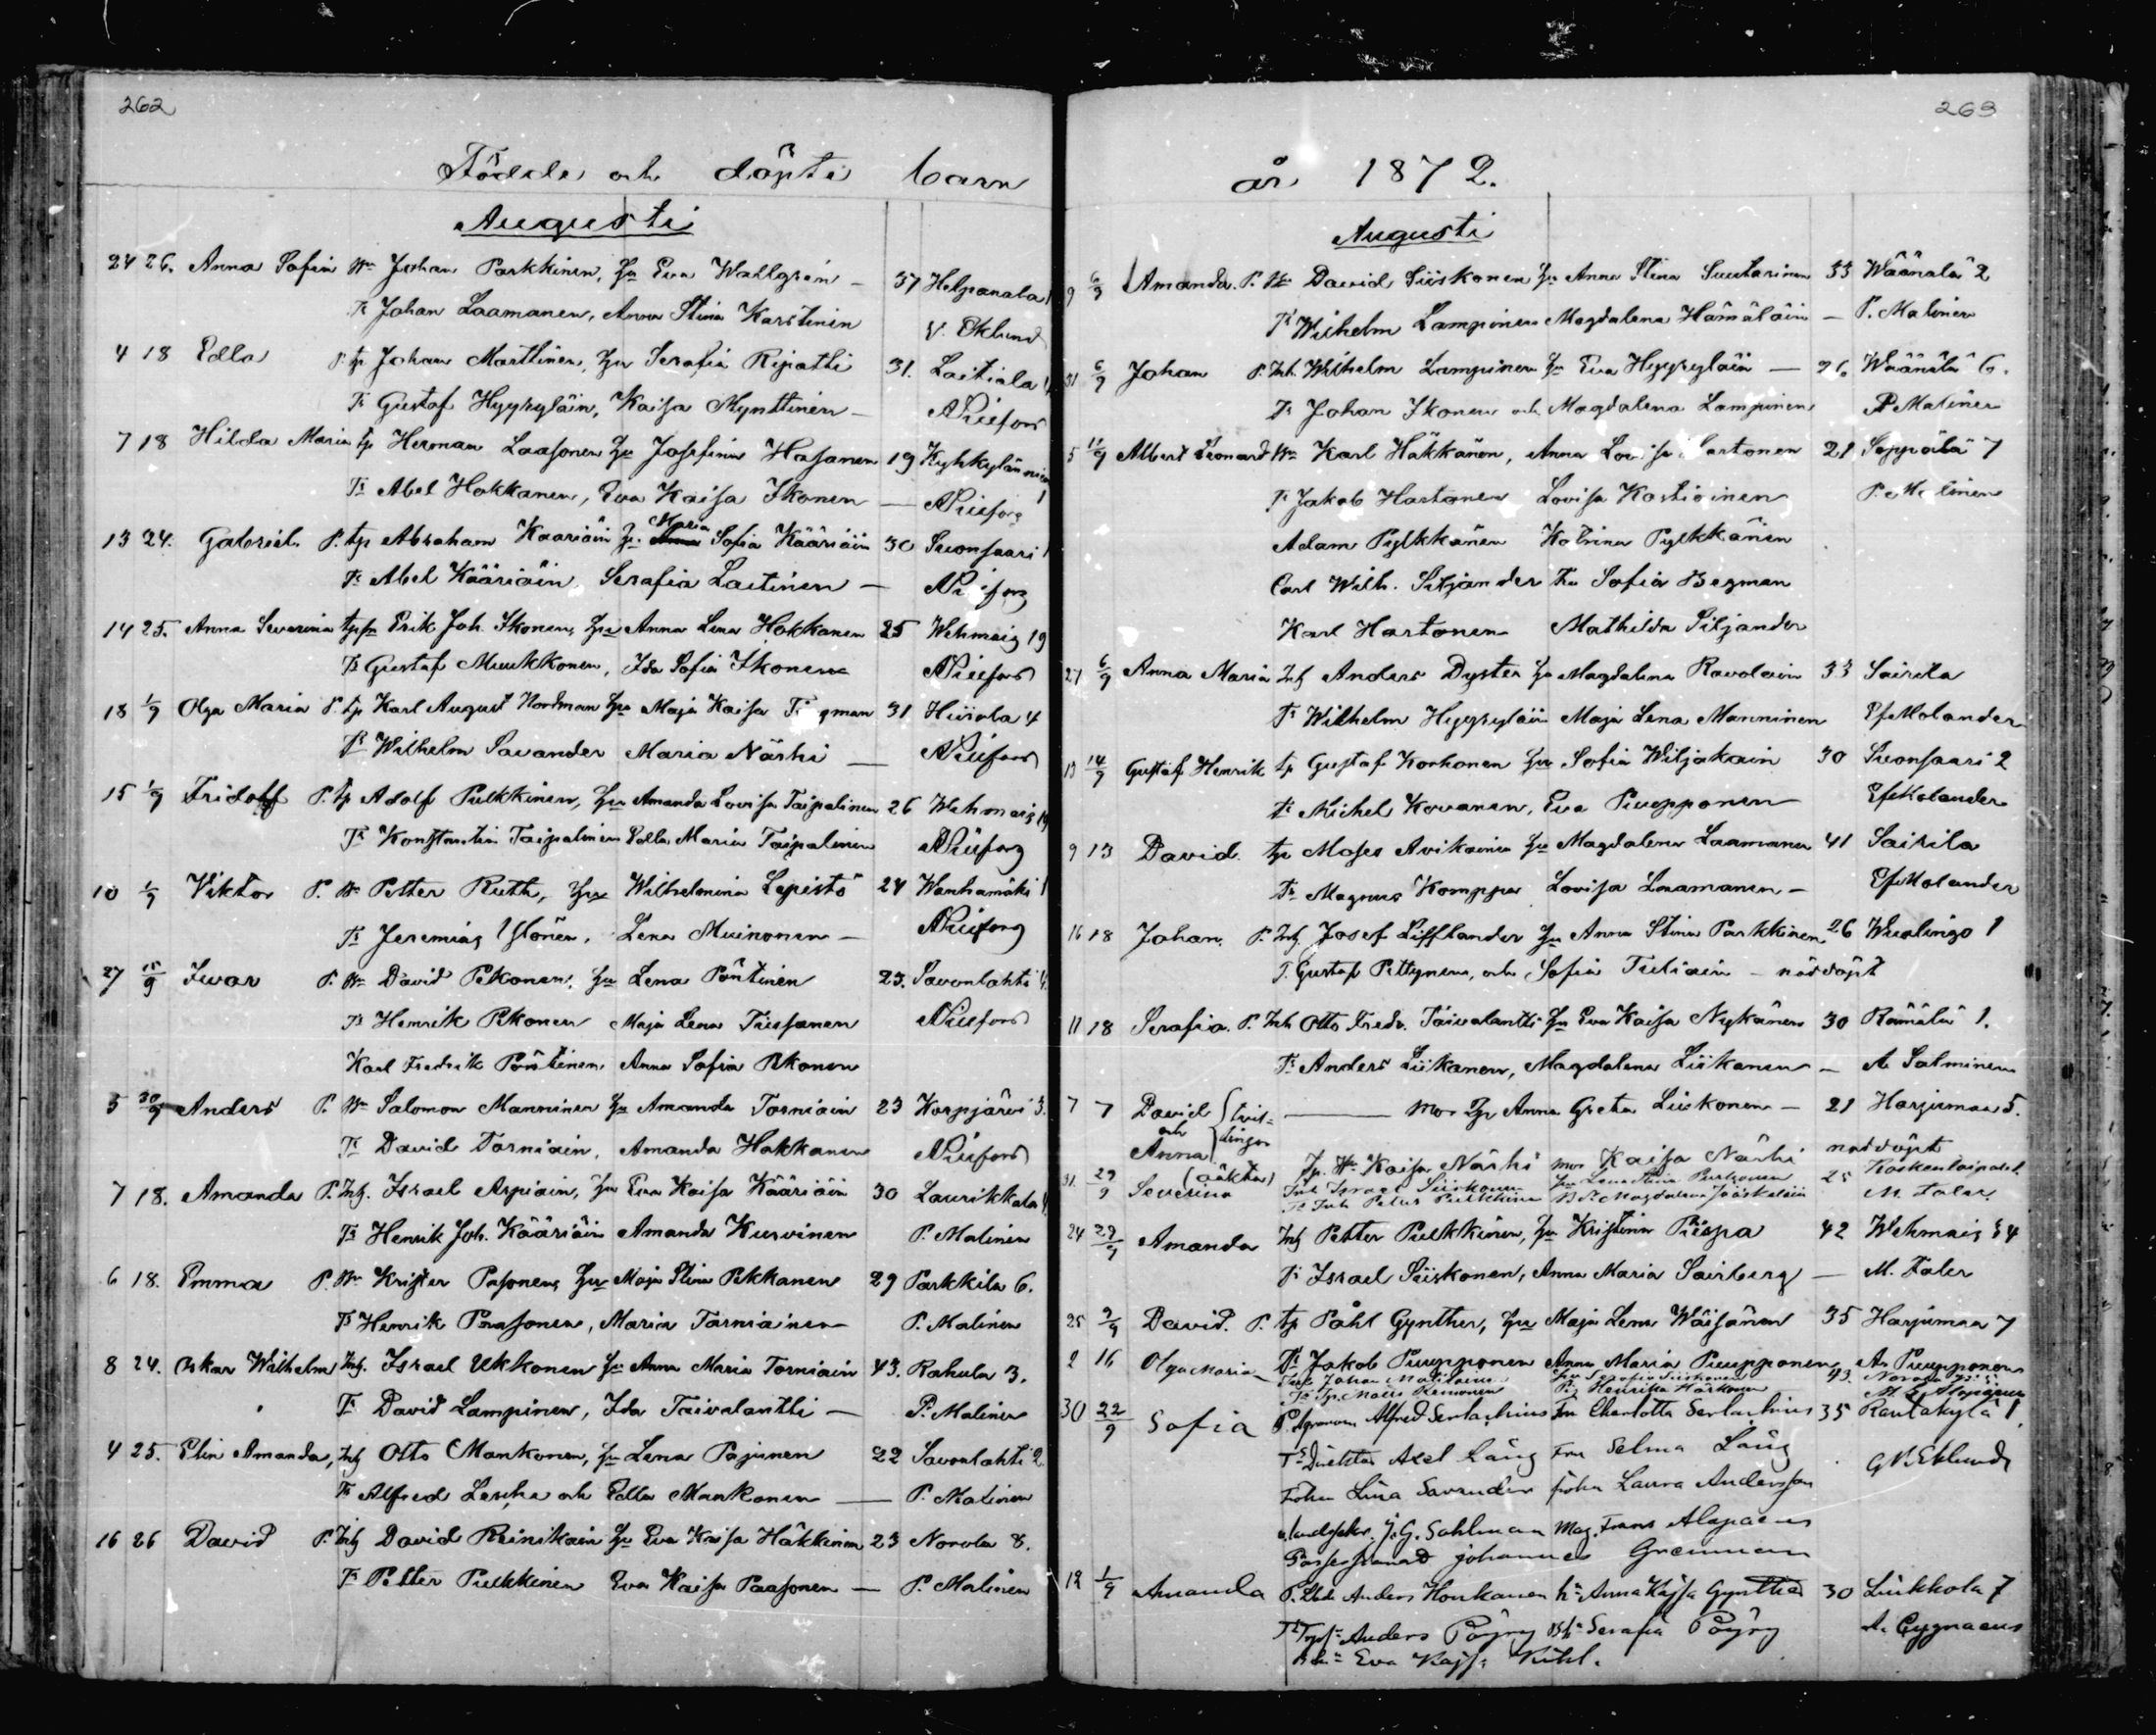 262
Födde och döpte barn
Augusti
24 26. Anna Sofia Bn Johan Parkkinen, hu Eva Wahlgrén — 37 Helpanala 1
Ts Johan Laamanen, Anna Stina Karstinen V. Eklund
4 18 Edla P. tp Johan Marttinen, hu Serafia Ripatti 31. Laitiala 4
Ts Gustaf Hyyryläin, Kaisa Mynttinen — Niufors
7 18 Hilda Maria tp Herman Laasonen hu Josefina Hasanen 19 Kyhkylänniem
Ts Abel Hokkanen, Eva Kaisa Ikonen — 1
13 24. Gabriel P. tp Abraham Kääriäin hu Maria Sofia Kääriäin 30 Suonsaari 1
Ts Abel Kääriäin, Serafia Laitinen —
14 25. Anna Severina Erik Joh. Ikonen, hu Anna Lena Hokkanen 25 Wehmais 19
Ts Gustaf Muukkonen, Ida Sofia Ikonen
18 1/9 Olga Maria P. tp Karl August Nordman hu Maja Kaisa 31 Hiirola 4
Ts Wilhelm Savander Maria Närhi —
15 1/9 Fridolf P. tp Adolf Pulkkinen, hu Amanda Lovisa Taipalinen 26 Wehmais 19
Ts Konstantin Taipalinen Edla Maria Taipalinen
10 1/9 Viktor P. Bn Petter Ruth, hu Wilhelmina Lepistö 24 Wanhamäki 1
Ts Jeremias Ylönen, Lena Muinonen —
27 15/9 Iwar P. Bn David Pekonen, hu Lena Pöntinen 23. Savonlahti 4.
Ts Henrik Pekonen Maja Lena Tiusanen
Karl Fredrik Pöntinen Anna Sofia Pekonen
5 30/9 Anders P. Bn Salomon Manninen hu Amanda Torniain 23 Korpjärvi 3.
Ts David Torniain, Amanda Hokkanen
7 18. Amanda P. Inh. Israel Arpiain, hu Eva Kaisa Kääriäin 30 Laurikkala 4.
Ts Henrik Joh. Kääriäin Amanda Kurvinen P. Malinen
6 18. Emma P. Bn Krister Pasonen, hu Maja Stina Pekkanen 29 Parkkila 6.
Ts Henrik Paasonen, Maria Torniainen P. Malinen
8 24. Oskar Wilhelm Inh. Israel Ukkonen hu Anna Maria Torniain 43. Rahula 3.
Ts David Lampinen, Ida Taivalantti — P. Malinen
4 25. Elin Amanda, Inh Otto Mankonen, hu Lena Pajunen 22 Savonlahti 2.
Ts Alfred och Edla Mankonen — P. Malinen
16 26 David P. Inh David Reinikain hu Eva Kaisa Häkkinen 23 Norola 8.
Ts Petter Pulkkinen Eva Kaisa Paasonen — P. Malinen
263
år 1872.
Augusti
9 6/9 Amanda. P. Bn David Siiskonen hu Anna Stina Suutarinen 33 Wäänälä 2
Ts Wilhelm Lampinen Magdalena Hämäläin — P. Malinen
31 6/9 Johan P. Inh. Wilhelm Lampinen hu Eva Hyyryläin — 26 Wäänälä 6.
Ts Johan Ikonen och Magdalena Lampinen P. Malinen
5 11/9 Albert Leonard Bn Karl Häkkänen, Anna Lovisa Hartonen 21 Seppälä 7
Ts Jakob Hartonen Lovisa P. Malinen
Adam Pylkkänen Katrina Pylkkänen
Carl Wilh. Siljander Fru Sofia Begman
Karl Hartonen Mathilda Siljander
27 6/9 Anna Maria Inh Anders Dyster hu Magdalena Ravolain 33 Sairila
Ts Wilhelm Hyyryläin Maja Lena Manninen Ef. Molander
13 14/9 Gustaf Henrik tp Gustaf Korhonen hu Sofia Wiljakain 30 Suonsaari 2
Ts Michel Kovanen, Eva Puupponen Ef. Molander
9 13 David. tp Moses Avikainen hu Magdalena Laamanen 41 Sairila
Ts Magnus Komppa Lovisa Laamanen — Ef. Molander
16 18 Johan. P. Inh Josef Lifflander hu Anna Stina Parkkinen 26 Wuolingo 1
T. Gustaf Pettynen, och Sofia Tuliain — nöddöpt
11 18 Serafia. P. Inh Otto Fredr. Taivalantti hu Eva Kaisa Nykänen 30 Rämälä 1.
Ts Anders Liikanen, Magdalena Liikanen — A. Salminen
7 7 David och Anna (oäkta) tvillingar — Mor Anna Greta Liukonen — 21 Harjumaa 5.
Kaisa Närhi mor Kaisa Närhi nöddöpt
31. 29/9 Severina Inh Israel Siiskonen hu Lena Stina Purhonen 25 Koskentaipale 1.
Ts Inh Petter Pulkkinen Magdalena Jääskeläin M. Faler
24 29/9 Amanda Inh Petter Pulkkinen, hu Kristina Piispa 42 Wehmais 34
Ts Israel Siiskonen, Anna Maria Sairberg — M. Faler
25 9/9 David. P. tp Påhl Gynther, hu Maja Lena Wäisänen 35 Harjumaa 7
Ts Jakob Puupponen Anna Maria Puupponen A. Puupponen
2 16 Olga Maria Inh Johan hu Serafia Siiskonen 43. Norola
Ts Henrika Härkönen M. E. Alopaeus
30 22/9 Sofia P. Agronom Alfred Serlachius Fru Charlotta Serlachius 35 Rantakylä 1.
Ts Direktör Axel Läng Fru Selma Läng G. V. Eklund
Fröken Lina Savander fröken Laura Andersson
J. G. Sahlman Mag. Frans Alopaeus
Possessionat Johannes Grenman
12 1/9 Amanda P. Anders Honkanen hu Anna Kajsa Gynther 30 Liukkola 7
Ts Anders Pöyry Serafia Pöyry A. Cygnaeus
Eva Kajsa Kühl.